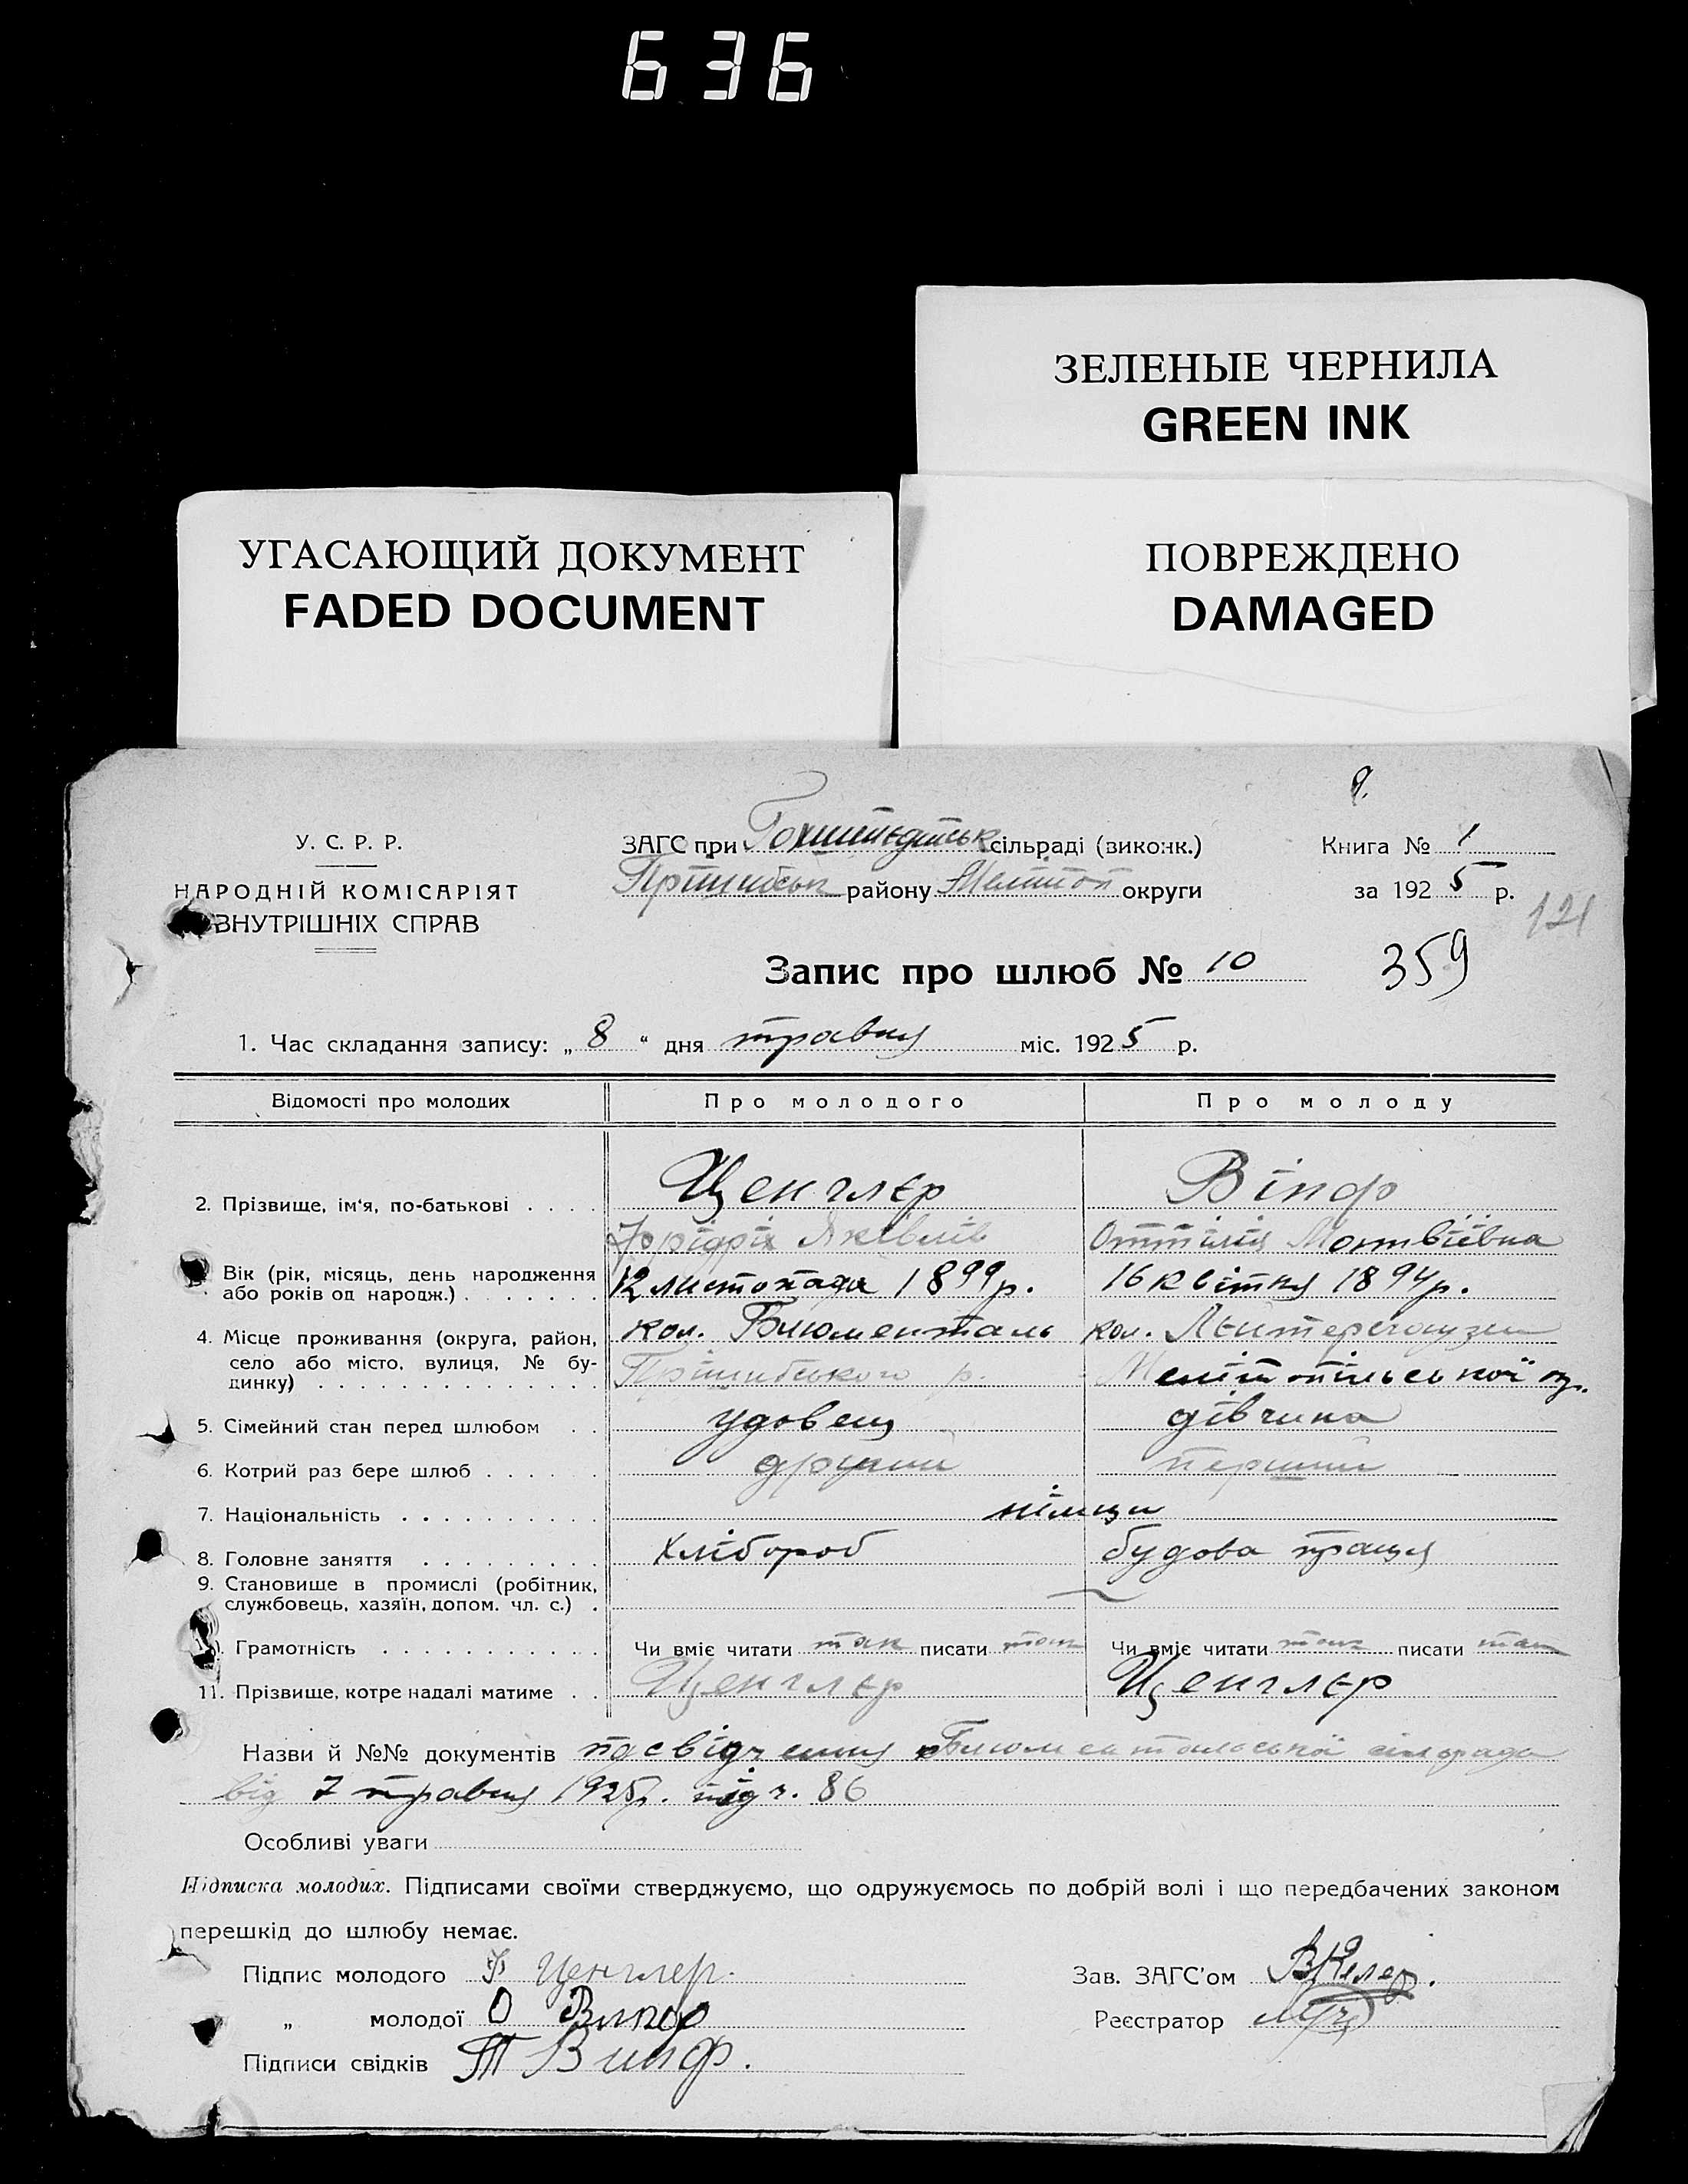 636
ЗЕЛЕНЫЕ ЧЕРНИЛА
GREEN INK
УГАСАЮЩИЙ ДОКУМЕНТ
FADED DOCUMENT
ПОВРЕЖДЕНО
DAMAGED
9.
У. С. Р. Р.
НАРОДНІЙ КОМІСАРІЯТ
ВНУТРІШНІХ СПРАВ
ЗАГС при Гохштедтськ сільраді (виконк.)
Прішибськ району Меліто́п округи
Книга № 1
за 1925 р.
121
Запис про шлюб № 10
359
1. Час складання запису: „ 8 “ дня травня міс. 1925 р.
Відомості про молодих Про молодого Про молоду
2. Прізвище, ім‘я, по-батькові . . . . Ценглєр Вінф
Фрідріх Яківлів Оттілія Матвіївна
Вік (рік, місяць, день народження або років од народж.) . . . . . . . 12 листопада 1899 р. 16 квітня 1894 р.
4. Місце проживання (округа, район, село або місто, вулиця, № будинку) . . . . . . . . . . . . . . кол. Блюменталь кол. Лейтерсгаузен
Прішибського р. Мелітопільської ок.
5. Сімейний стан перед шлюбом . . удовець дівчина
6. Котрий раз бере шлюб . . . . . другий перший
7. Національність . . . . . . . . . . німци
8. Головне заняття . . . . . . . . . хлібороб будова праця
9. Становище в промислі (робітник, службовець, хазяїн, допом. чл. с.) .
Грамотність . . . . . . . . . . . Чи вміє читати так писати так Чи вміє читати так писати так
11. Прізвище, котре надалі матиме . . Ценглєр Ценглєр
Назви й №№ документів посвідчення Блюментальської сільради
від 7 травня 1925р. під ч. 86
Особливі уваги
Підписка молодих. Підписами своїми стверджуємо, що одружуємось по добрій волі і що передбачених законом
перешкід до шлюбу немає.
Підпис молодого Ф Ценглер.
Зав. ЗАГС’ом ВКелер.
„ молодої О Винф
Реєстратор
Підписи свідків Т Винф.